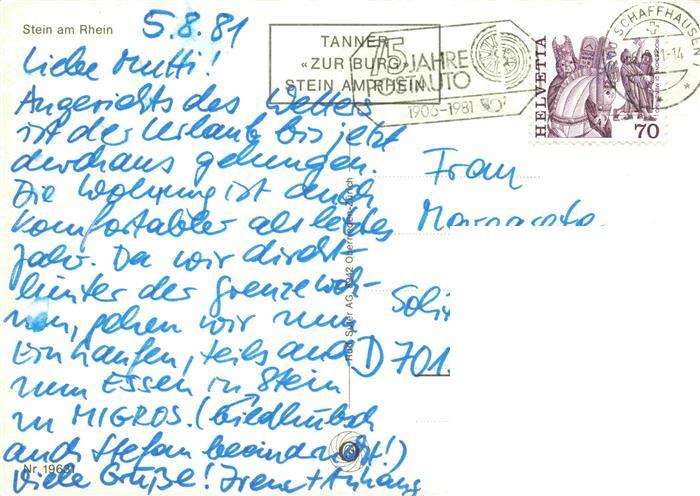 Stein am Rhein
5.8.81
Liebe Mutti!
Angesichts des Wetters
ist der Urlaub bis jetzt
durchaus gelungen.
Die Wohnung ist auch
komfortabler als letztes
Jahr. Da wir direkt
hinter der Grenze woh-
nen, gehen wir zum
Einkaufen, teils auch
zum Essen in Stein
zu MIGROS. (bildhübsch
auch Stefan beeindruckt!)
Viele Grüße! Irene + Anhang
Nr. 19631
TANNER
«ZUR BURG»
STEIN AM RHEIN
75 JAHRE
POSTAUTO
1906-1981
SCHAFFHAUSEN
HELVETIA
70
Frau
Margarete
D 701